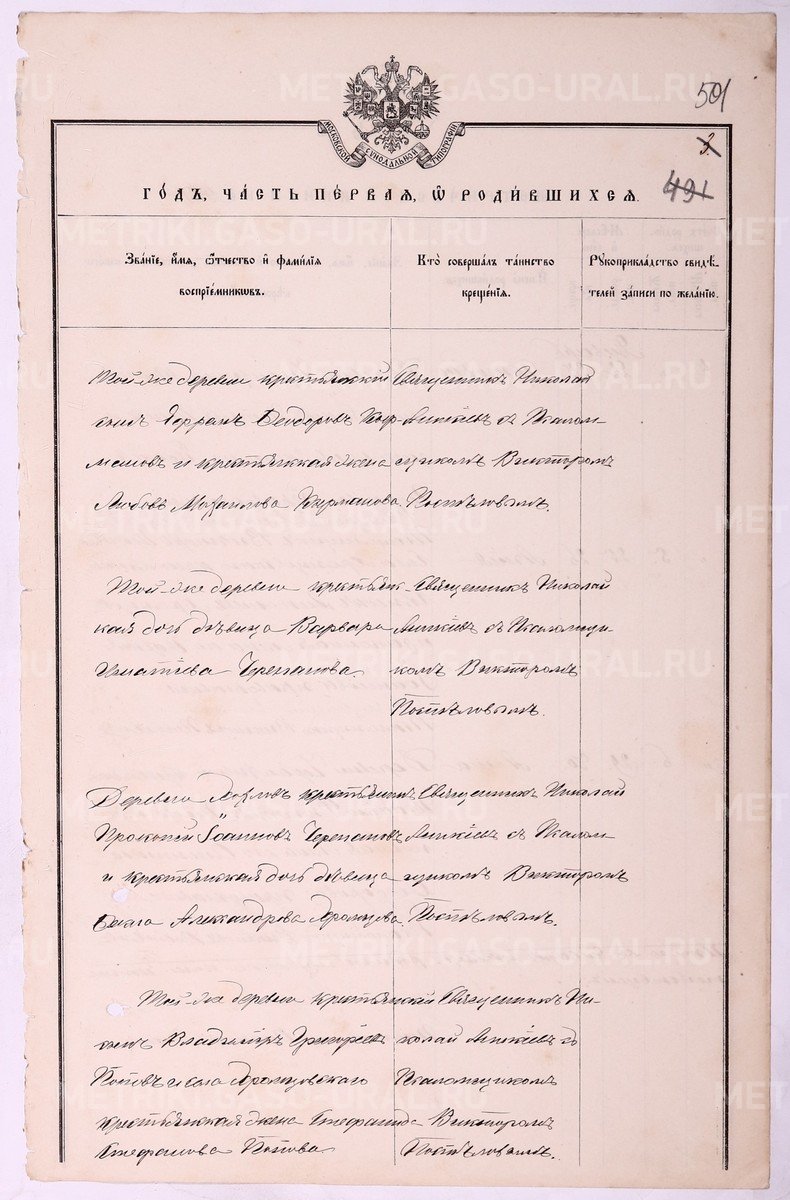 501
МОСКОВСКОЙ СѴНОДАЛЬНОЙ ТИПОГРАФІИ
3.
491
ГОДЪ, ЧАСТЬ ПЕРВАЯ, Ѡ РОДИВШИХСЯ.
Званіе, имя, отчество и фамилія
воспріемниковъ.
Кто совершалъ таинство
крещенія.
Рукоприкладство свидѣ-
телей записи по желанію.
Той-же деревни крестьянскій
сынъ Ѳеодоровъ
и крестьянская жена
Любовь Михаилова
Священникъ Николай
Аникіевъ съ Псалом-
щикомъ Викторомъ
Поспѣловымъ.
Той-же деревни крестьянс-
кая дочь дѣвица Варвара
Игнатіева Черепанова.
Священникъ Николай
Аникіевъ съ Псаломщи-
комъ Викторомъ
Поспѣловымъ.
Деревни крестьянинъ
Прокопій Іоанновъ Черепановъ
и крестьянская дочь дѣвица
Александрова
Священникъ Николай
Аникіевъ съ Псалом-
щикомъ Викторомъ
Поспѣловымъ.
Той-же деревни крестьянскій
сынъ Владиміръ Григоріевъ
Поповъ и села
крестьянская жена
Стефанова Попова
Священникъ Ни-
колай Аникіевъ съ
Псаломщикомъ
Викторомъ
Поспѣловымъ.
METRIKI.GASO-URAL.RU